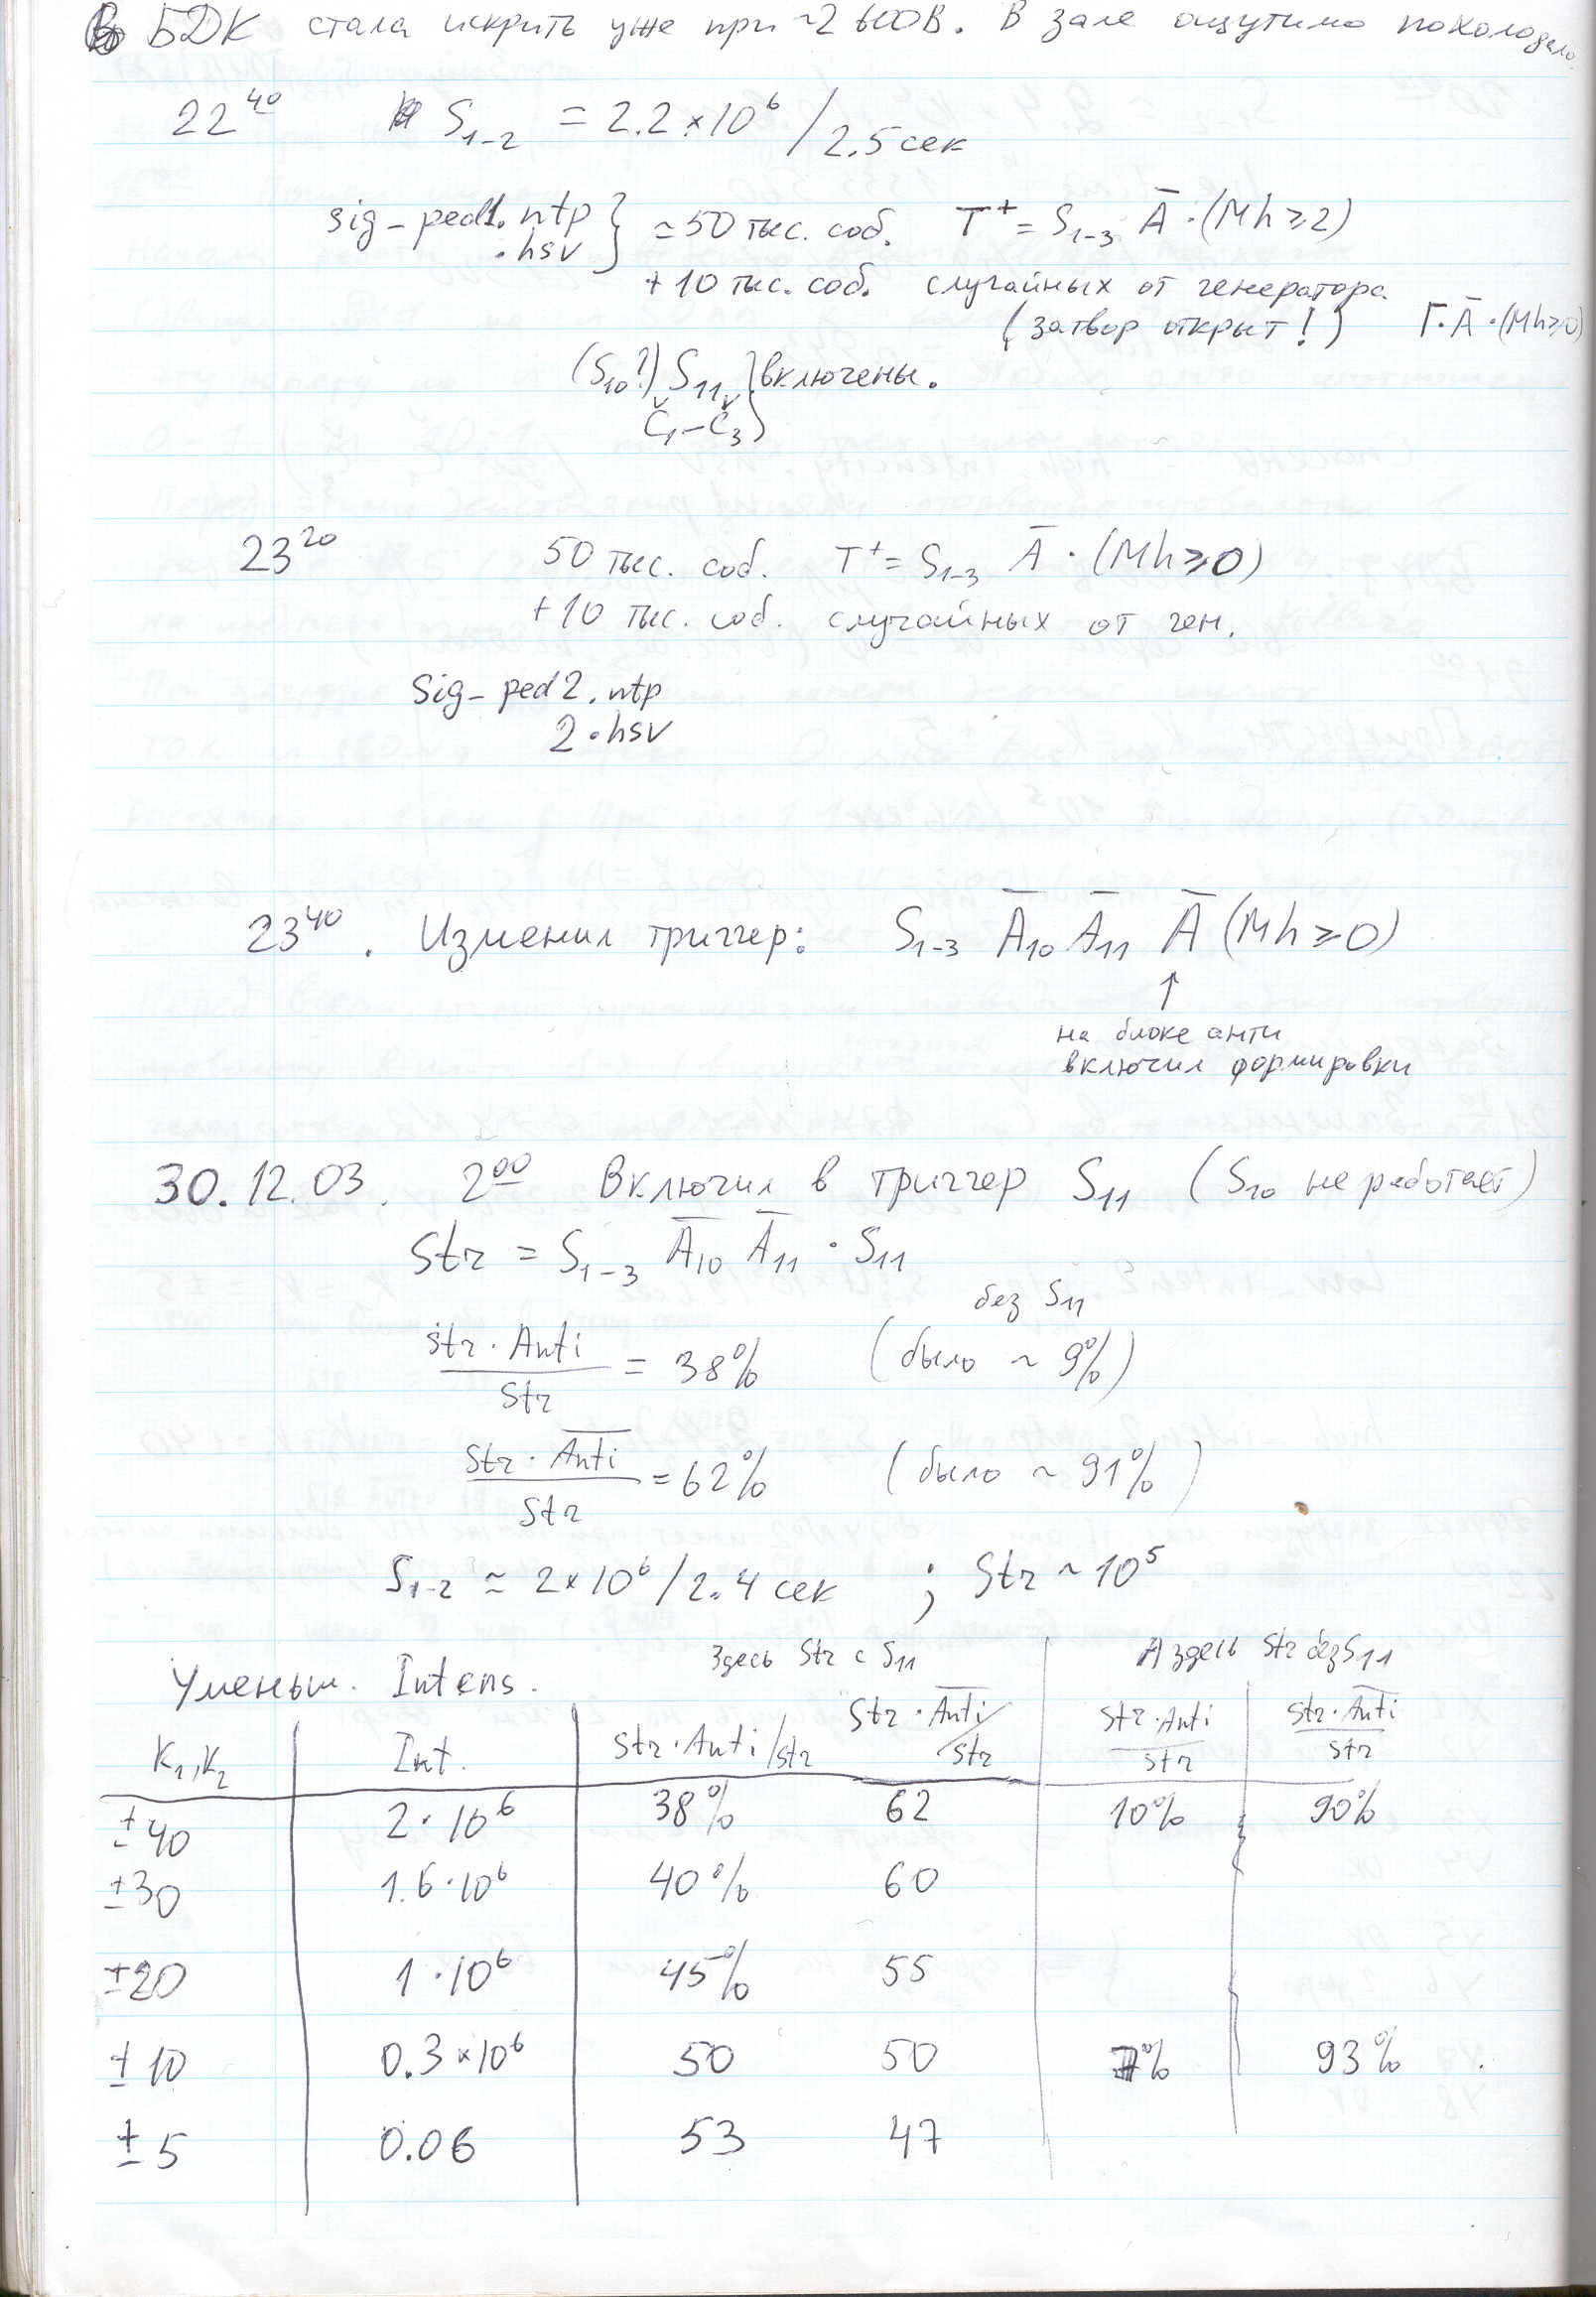 БДК стала искрить уже при ~2600В. В зале ощутимо похолодало.
22⁴⁰ S₁₋₂ = 2.2×10⁶ / 2.5 сек
sig_ped1.ntp } ≃50 тыс. соб. T⁺ = S₁₋₃ A̅ · (Mh ≥ 2)
.hsv
+10 тыс. соб. случайных от генератора
(затвор открыт!) Г·A̅·(Mh≥0)
(S₁₀?) S₁₁ } включены.
Č₁–Č₃
23²⁰ 50 тыс. соб. T⁺ = S₁₋₃ A̅ · (Mh ≥ 0)
+10 тыс. соб. случайных от ген.
Sig_ped2.ntp
2.hsv
23⁴⁰. Изменил триггер: S₁₋₃ A̅₁₀ A̅₁₁ A̅ (Mh ≥ 0)
↑
на блоке анти
включил формировки
30.12.03. 2⁰⁰ Включил в триггер S₁₁ (S₁₀ не работает)
Str = S₁₋₃ A̅₁₀ A̅₁₁ · S₁₁
без S₁₁
Str · Anti / Str = 38% (было ~ 9%)
Str · A̅n̅t̅i̅ / Str = 62% (было ~ 91%)
S₁₋₂ ≃ 2×10⁶ / 2.4 сек ; Str ~ 10⁵
Уменьш. Intens. Здесь Str с S₁₁ А здесь Str без S₁₁
K₁,K₂ Int. Str·Anti/Str Str·A̅n̅t̅i̅/Str Str·Anti/Str Str·A̅n̅t̅i̅/Str
±40 2·10⁶ 38% 62 10% 90%
±30 1.6·10⁶ 40% 60
±20 1·10⁶ 45% 55
±10 0.3×10⁶ 50 50 7% 93%
±5 0.06 53 47